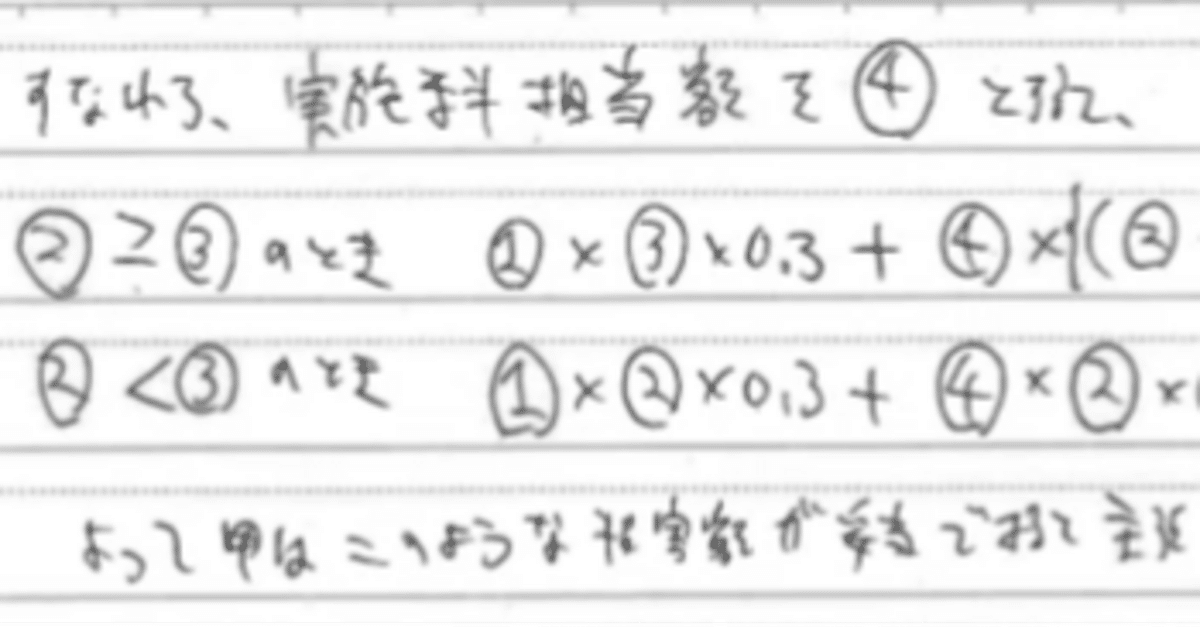 すなわち、実施料相当額を④とすると、
②≧③のとき ①×③×0.3+④×{(②
②<③のとき ①×②×0.3+④×②×
よって甲はこのような損害額が妥当であると主張